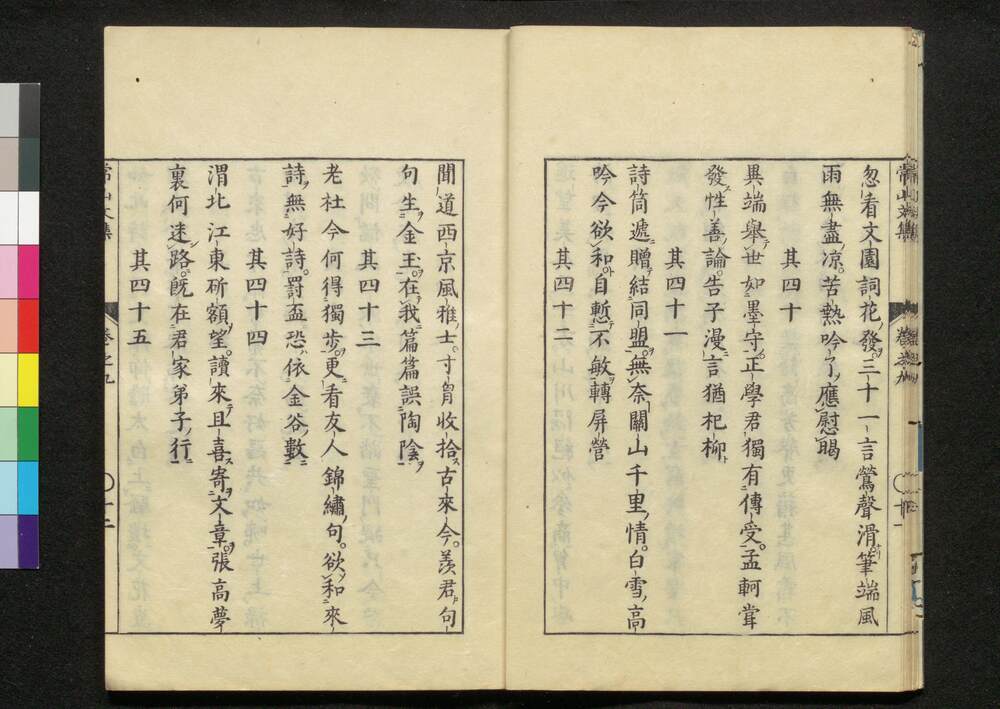 忽看文園詞花發三十一言鶯聲滑筆端風
雨無盡凉苦熱吟今應慰暍
其四十
異端舉世如墨守正學君獨有傳受孟軻甞
發性善論告子漫言猶杞柳
其四十一
詩筒遞贈結同盟無奈關山千里情白雪高
吟今欲和自慙不敏轉屏營
其四十二
聞道西京風雅士寸胷收拾古來今羨君句
句生金玉在我篇篇誤陶陰
其四十三
老杜今何得獨步更看友人錦繡句欲和來
詩無好詩罰盃恐依金谷數
其四十四
渭北江東斫額望讀來且喜寄文章張高夢
裏何迷路既在君家弟子行
其四十五
常山文集
卷之九